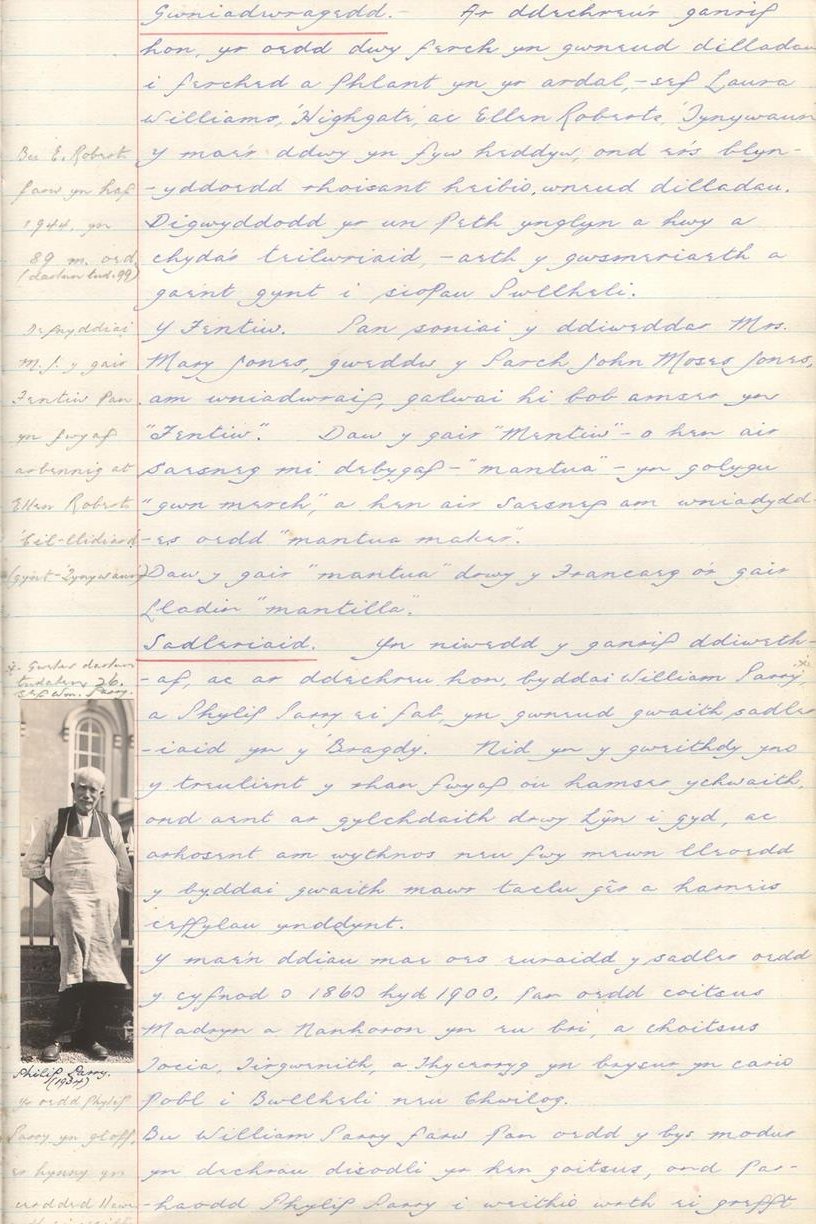 Gwniadwragedd.- Ar ddechreu'r ganrif
hon, yr oedd dwy ferch yn gwneud dilladau
i ferched a phlant yn yr ardal,-sef Laura
Williams, 'Highgate', ac Ellen Roberts, 'Tynywaun'
Y mae'r ddwy yn fyw heddyw, ond ers blyn-
-yddoedd rhoisant heibio, wneud dilladau.
Digwyddodd yr un peth ynglyn a hwy a
chyda'r teilwriaid, -aeth y gwsmeriaeth a
gaent gynt i siopau Pwllheli.
Y Fentiw. Pan soniai y ddiweddar Mrs.
Mary Jones, gweddw y Parch John Moses Jones,
am wniadwraig, galwai hi bob amser yn
"Fentiw". Daw y gair "Mentiw"- o hen air
Saesneg mi debygaf-"mantua"- yn golygu
"gwn merch", a hen air Saesneg am wniadydd-
-es oedd "mantua maker".
Daw y gair "mantua" drwy y Francaeg o'r gair
Lladin "mantilla".
Sadleriaid. Yn niwedd y ganrif ddiweth-
-af, ac ar ddechreu hon, byddai William Parry,*
a Phylip Parry ei fab, yn gwneud gwaith sadler-
-iaid yn y 'Bragdy'. Nid yn y gweithdy yno
y treulient y rhan fwyaf o'u hamser ychwaith,
ond aent ar gylchdaith drwy Lŷn i gyd, ac
arhosent am wythnos neu fwy mewn lleoedd
y byddai gwaith mawr taclu gêr a harneis
ceffylau ynddynt.
Y mae'n ddiau mae oes euraidd y sadler oedd
y cyfnod o 1860 hyd 1900, pan oedd coitsus
Madryn a Nanhoron yn eu bri, a choitsus
Tocia, Tirgwenith, a Thycerryg yn brysur yn cario
pobl i Bwllheli neu Chwilog.
Bu William Parry farw pan oedd y bys modur
yn dechrau disodli yr hen goitsus, ond par-
-haodd Phylip Parry i weithio wrth ei grefft
Bu E. Roberts
farw yn haf
1944, yn
89 m. oed.
(darlun tud. 99)
Defnyddiai
M.J. y gair
Fentiw pan
yn fwyaf
arbennig at
Ellen Roberts
'Cil-llidiard
(gynt-Tynywaun)
*. Gweler darlun
tudalen 26.
sef Wm. Parry.
Philip Parry.
(1934)
Yr oedd Phylip
Parry yn gloff,
er hynny yn
cerdded